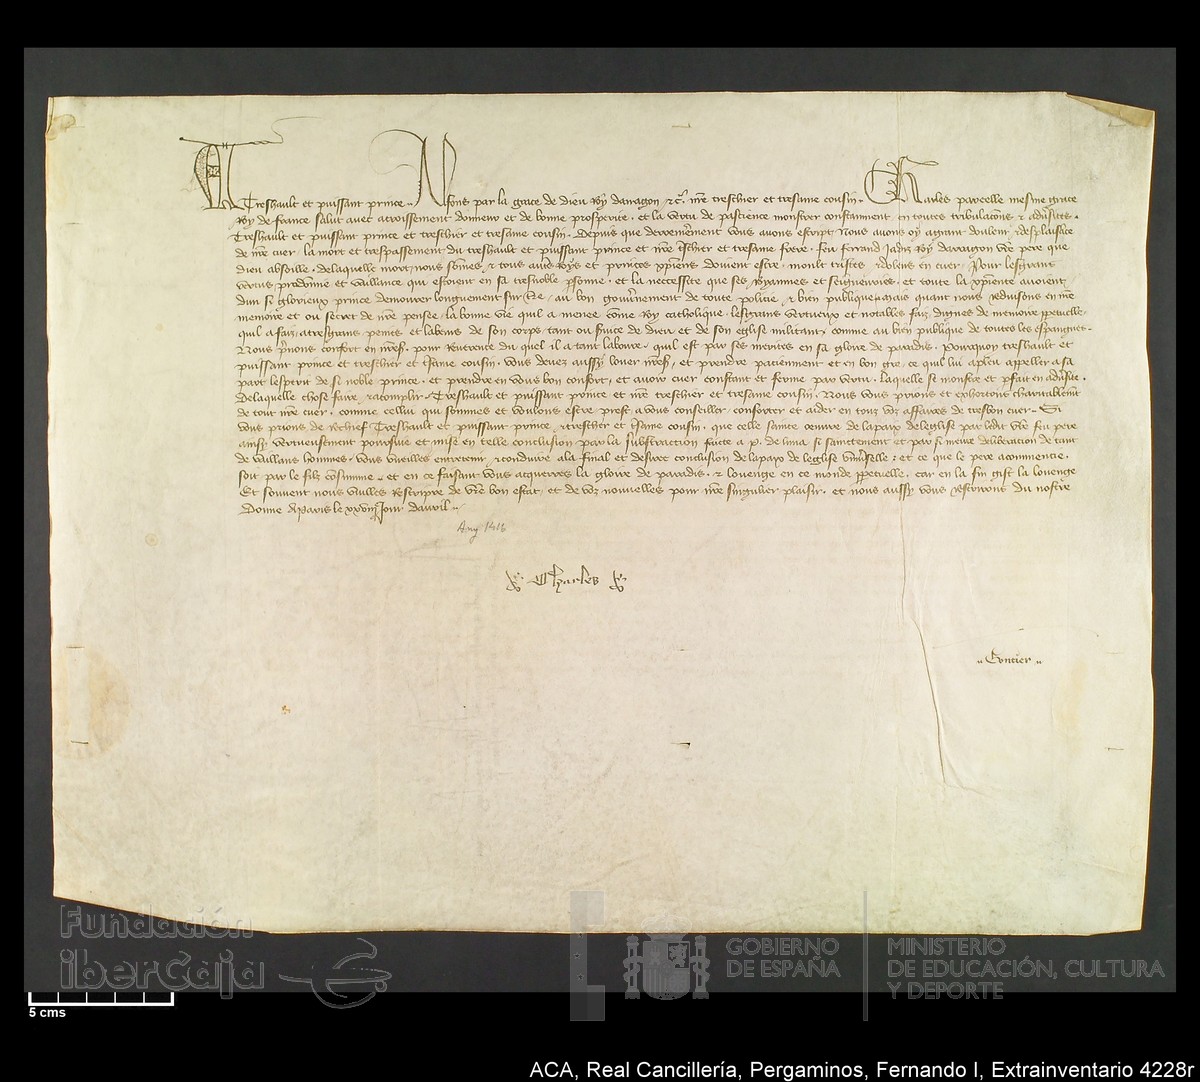 A Treshault et puissant prince .. Alfons par la grace de dieu Roy darragon &c. nostre treschier et tresame cousin . Charles par celle mesme grace
Roy de france salut avec acroissement donneur et de bonne prosperite . et la vertu de pascience monstrer constanment en toutes tribulacions & adversites .
Treshault et puissant prince et treschier et tresame cousin . Depuis que derrenierement vous avons escript Nous avons oy a grant douleur & desplaisance
de nostre cuer . la mort et trespassement du treshault et puissant prince et nostre treschier et tresame frere . feu ferrand Jadis Roy darragon vostre pere que
dieu absoille . de laquelle mort nous sommes & tous autres Roys et princes xpristiens doivent estre . moult tristes & dolens en cuer . Pour les grans
vertus predomie et vaillance qui estoient en sa tresnoble personne . et la neccessite que ses Royaumes et seigneuries . et toute la xpristiente avoient
dun si glorieux prince demourer longuement sur terre . au bon gouvernement de toute policie & bien publique . Mais quant nous reduisons en nostre
memoire et ou secret de nostre pensee . la bonne vie quil a menee comme Roy catholique . les grans vertueux et notables faiz dignes de memoire perpetuelle
quil a faiz a tresgrans peines et labeurs de son corps tant ou service de dieu et de son eglise militant . comme au bien publique de toutes les espaignes .
Nous prenons confort en nous . pour Reverence du quel il a tant laboure . quil est par ses merites en sa gloire de paradis . Pourquoy treshault et
puissant prince et treschier et tresame cousin . vous devez aussy louer et prendre paciemment et en bon gre . ce quil lui a pleu appeller a sa
part lesperit de si noble prince . et prendre en vous bon confort . et avoir cuer constant et ferme par vertu . laquelle se monstre et parfait en adversite .
De laquelle chose faire & acomplir . Treshault et puissant prince et nostre treschier et tresame cousin . Nous vous prions et exhortons charitablement
de tout nostre cuer . comme cellui qui sommes et voulons estre prest a vous conseiller . conforter et aider en touz voz affaires de tresbon cuer . Si
vous prions de rechief Treshault et puissant prince & treschier et tresame cousin . que celle sainte oeuvre de la paix de leglise par ledit vostre feu pere
ainsi vertueusement poursuie et mise en telle conclusion par la substraction faicte a P. de luna si sainctement et par si meure deliberacion de tant
de vaillans hommes . vous vueilles entretenir & conduire a la final et desiree conclusion de la paix de leglise universelle . et ce que le pere a commence .
soit par le filz consumme . et en ce faisant vous acquerres la gloire de paradis . & louenge en ce monde perpetuelle . car en la fin gist la louenge
Et souvent nous vuilles Rescripre de vostre bon estat . et de voz nouvelles pour nostre singulier plaisir . et nous aussy vous rescrirons du nostre
Donne a Paris le xxviij Jour davril ..
Any 1416
Charles
.. Contier ..
Fundación
iberCaja
GOBIERNO
DE ESPAÑA
MINISTERIO
DE EDUCACIÓN, CULTURA
Y DEPORTE
5 cms
ACA, Real Cancillería, Pergaminos, Fernando I, Extrainventario 4228r